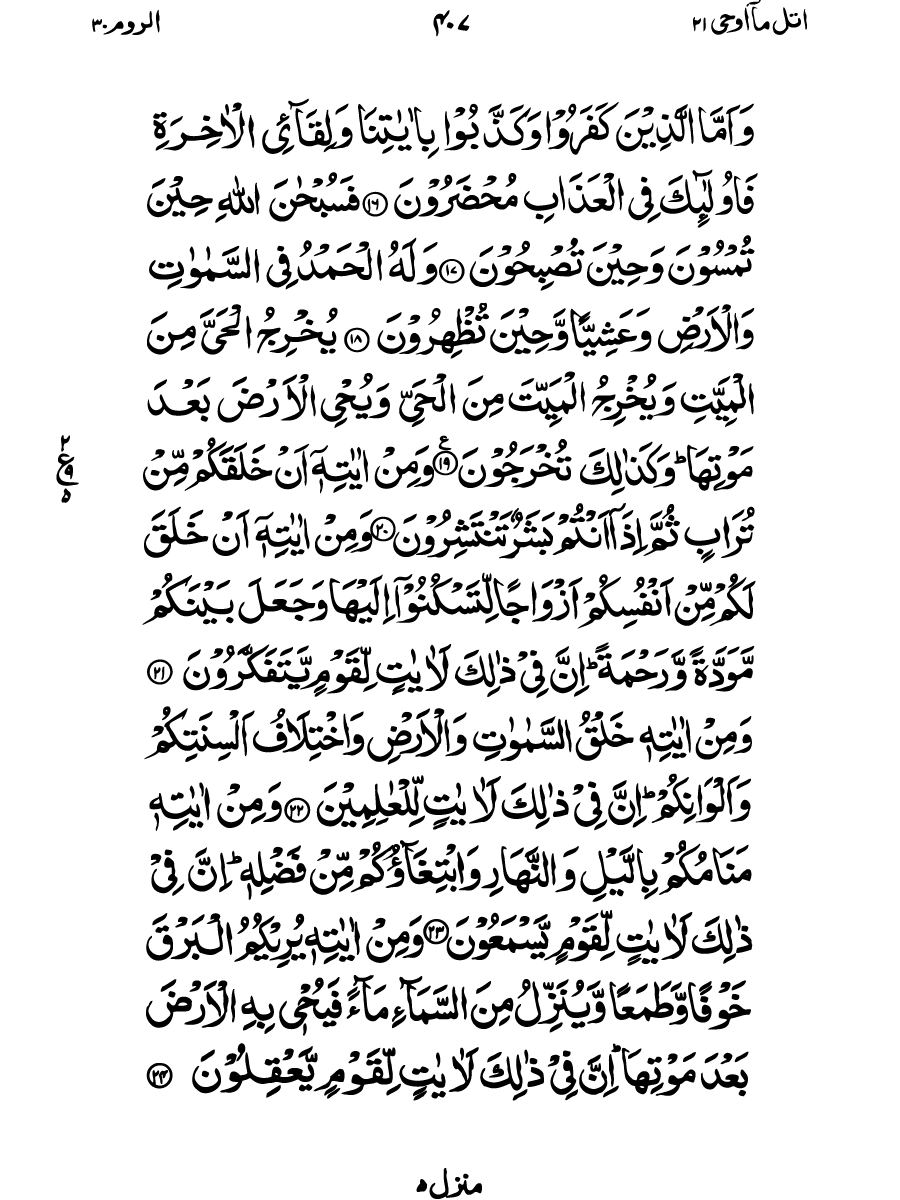 اتل مآ اوحی ۲۱ ۴۰۷ الروم ۳۰
وَاَمَّا الَّذِيْنَ كَفَرُوْا وَكَذَّبُوْا بِاٰيٰتِنَا وَلِقَآئِ الْاٰخِرَةِ
فَاُولٰٓئِكَ فِى الْعَذَابِ مُحْضَرُوْنَ ۝۱۶ فَسُبْحٰنَ اللّٰهِ حِيْنَ
تُمْسُوْنَ وَحِيْنَ تُصْبِحُوْنَ ۝۱۷ وَلَهُ الْحَمْدُ فِى السَّمٰوٰتِ
وَالْاَرْضِ وَعَشِيًّا وَّحِيْنَ تُظْهِرُوْنَ ۝۱۸ يُخْرِجُ الْحَىَّ مِنَ
الْمَيِّتِ وَيُخْرِجُ الْمَيِّتَ مِنَ الْحَىِّ وَيُحْىِ الْاَرْضَ بَعْدَ
مَوْتِهَا ؕ وَكَذٰلِكَ تُخْرَجُوْنَ ۝۱۹ ع وَمِنْ اٰيٰتِهٖۤ اَنْ خَلَقَكُمْ مِّنْ
تُرَابٍ ثُمَّ اِذَاۤ اَنْتُمْ بَشَرٌ تَنْتَشِرُوْنَ ۝۲۰ وَمِنْ اٰيٰتِهٖۤ اَنْ خَلَقَ
لَكُمْ مِّنْ اَنْفُسِكُمْ اَزْوَاجًا لِّتَسْكُنُوْۤا اِلَيْهَا وَجَعَلَ بَيْنَكُمْ
مَّوَدَّةً وَّرَحْمَةً ؕ اِنَّ فِىْ ذٰلِكَ لَاٰيٰتٍ لِّقَوْمٍ يَّتَفَكَّرُوْنَ ۝۲۱
وَمِنْ اٰيٰتِهٖ خَلْقُ السَّمٰوٰتِ وَالْاَرْضِ وَاخْتِلَافُ اَلْسِنَتِكُمْ
وَاَلْوَانِكُمْ ؕ اِنَّ فِىْ ذٰلِكَ لَاٰيٰتٍ لِّلْعٰلِمِيْنَ ۝۲۲ وَمِنْ اٰيٰتِهٖ
مَنَامُكُمْ بِالَّيْلِ وَالنَّهَارِ وَابْتِغَآؤُكُمْ مِّنْ فَضْلِهٖ ؕ اِنَّ فِىْ
ذٰلِكَ لَاٰيٰتٍ لِّقَوْمٍ يَّسْمَعُوْنَ ۝۲۳ وَمِنْ اٰيٰتِهٖ يُرِيْكُمُ الْبَرْقَ
خَوْفًا وَّطَمَعًا وَّيُنَزِّلُ مِنَ السَّمَآءِ مَآءً فَيُحْىٖ بِهِ الْاَرْضَ
بَعْدَ مَوْتِهَا ؕ اِنَّ فِىْ ذٰلِكَ لَاٰيٰتٍ لِّقَوْمٍ يَّعْقِلُوْنَ ۝۲۴
۲
ع ۹
۵
منزل ۵